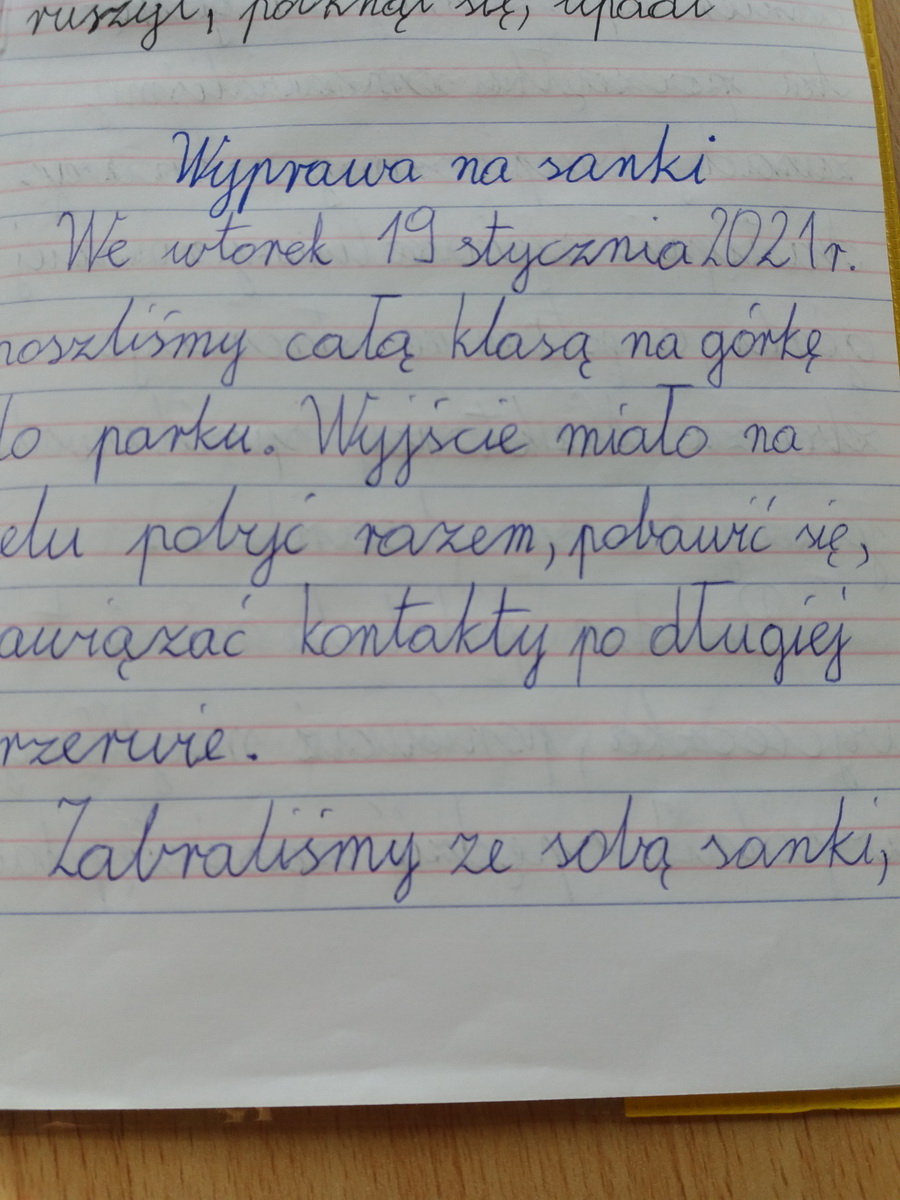 ruszył, potknął się, upadł
Wyprawa na sanki
We wtorek 19 stycznia 2021 r.
poszliśmy całą klasą na górkę
do parku. Wyjście miało na
celu pobyć razem, pobawić się,
nawiązać kontakty po długiej
przerwie.
Zabraliśmy ze sobą sanki,